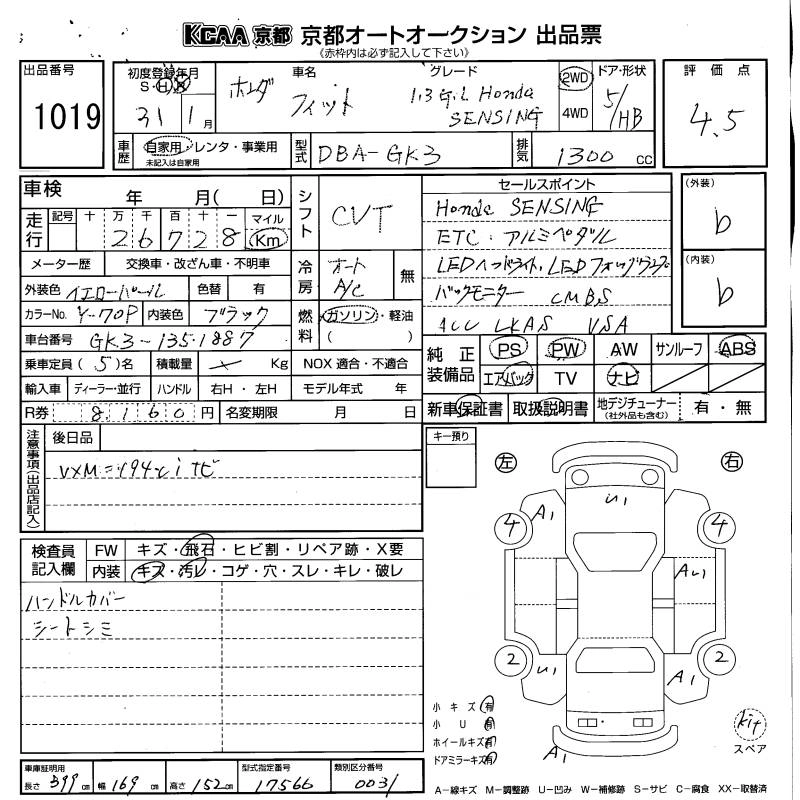 KCAA 京都 京都オートオークション 出品票
《赤枠内は必ず記入して下さい》
出品番号
1019
初度登録年月
S・H・R
31 1月
車名
ホンダ フィット
グレード
1.3 G.L Honda
SENSING
2WD
4WD
ドア・形状
5/HB
評価点
4.5
車歴
自家用・レンタ・事業用
未記入は自家用
型式
DBA-GK3
排気
1300 cc
車検 年 月( 日)
走行
記号 十 万 千 百 十 一 マイル
26728 Km
シフト
CVT
セールスポイント
Honda SENSING
ETC・アルミペダル
LEDヘッドライト、LEDフォッグライト
バックモニター CMBS
ACC LKAS VSA
(外装)
b
(内装)
b
メーター歴 交換車・改ざん車・不明車
冷房
オート
A/C
無
外装色 イエローパール 色替 有
カラーNo. Y-70P 内装色 ブラック
燃料
ガソリン・軽油
( )
車台番号 GK3-1351887
乗車定員 (5)名 積載量 Kg NOX 適合・不適合
輸入車 ディーラー・並行 ハンドル 右H・左H モデル年式 年
R券 8,160 円 名変期限 月 日
純正装備品
PS PW AW サンルーフ ABS
エアバック TV ナビ
新車保証書 取扱説明書 地デジチューナー
(社外品も含む)
有・無
注意事項(出品店記入)
後日品
VXM=194ci ナビ
キー預り
検査員記入欄
FW キズ・飛石・ヒビ割・リペア跡・X要
内装 キズ・汚レ・コゲ・穴・スレ・キレ・破レ
ハンドルカバー
シートシミ
左 右
U1
A1
4 4
A1
2 2
U1 A1
A1
小キズ 有
小U 有
ホイールキズ 有
ドアミラーキズ 有
kit
スペア
車庫証明用
長さ 399cm 幅 169cm 高さ 152cm
型式指定番号
17566
類別区分番号
0031
A-線キズ M-調整跡 U-凹み W-補修跡 S-サビ C-腐食 XX-取替済